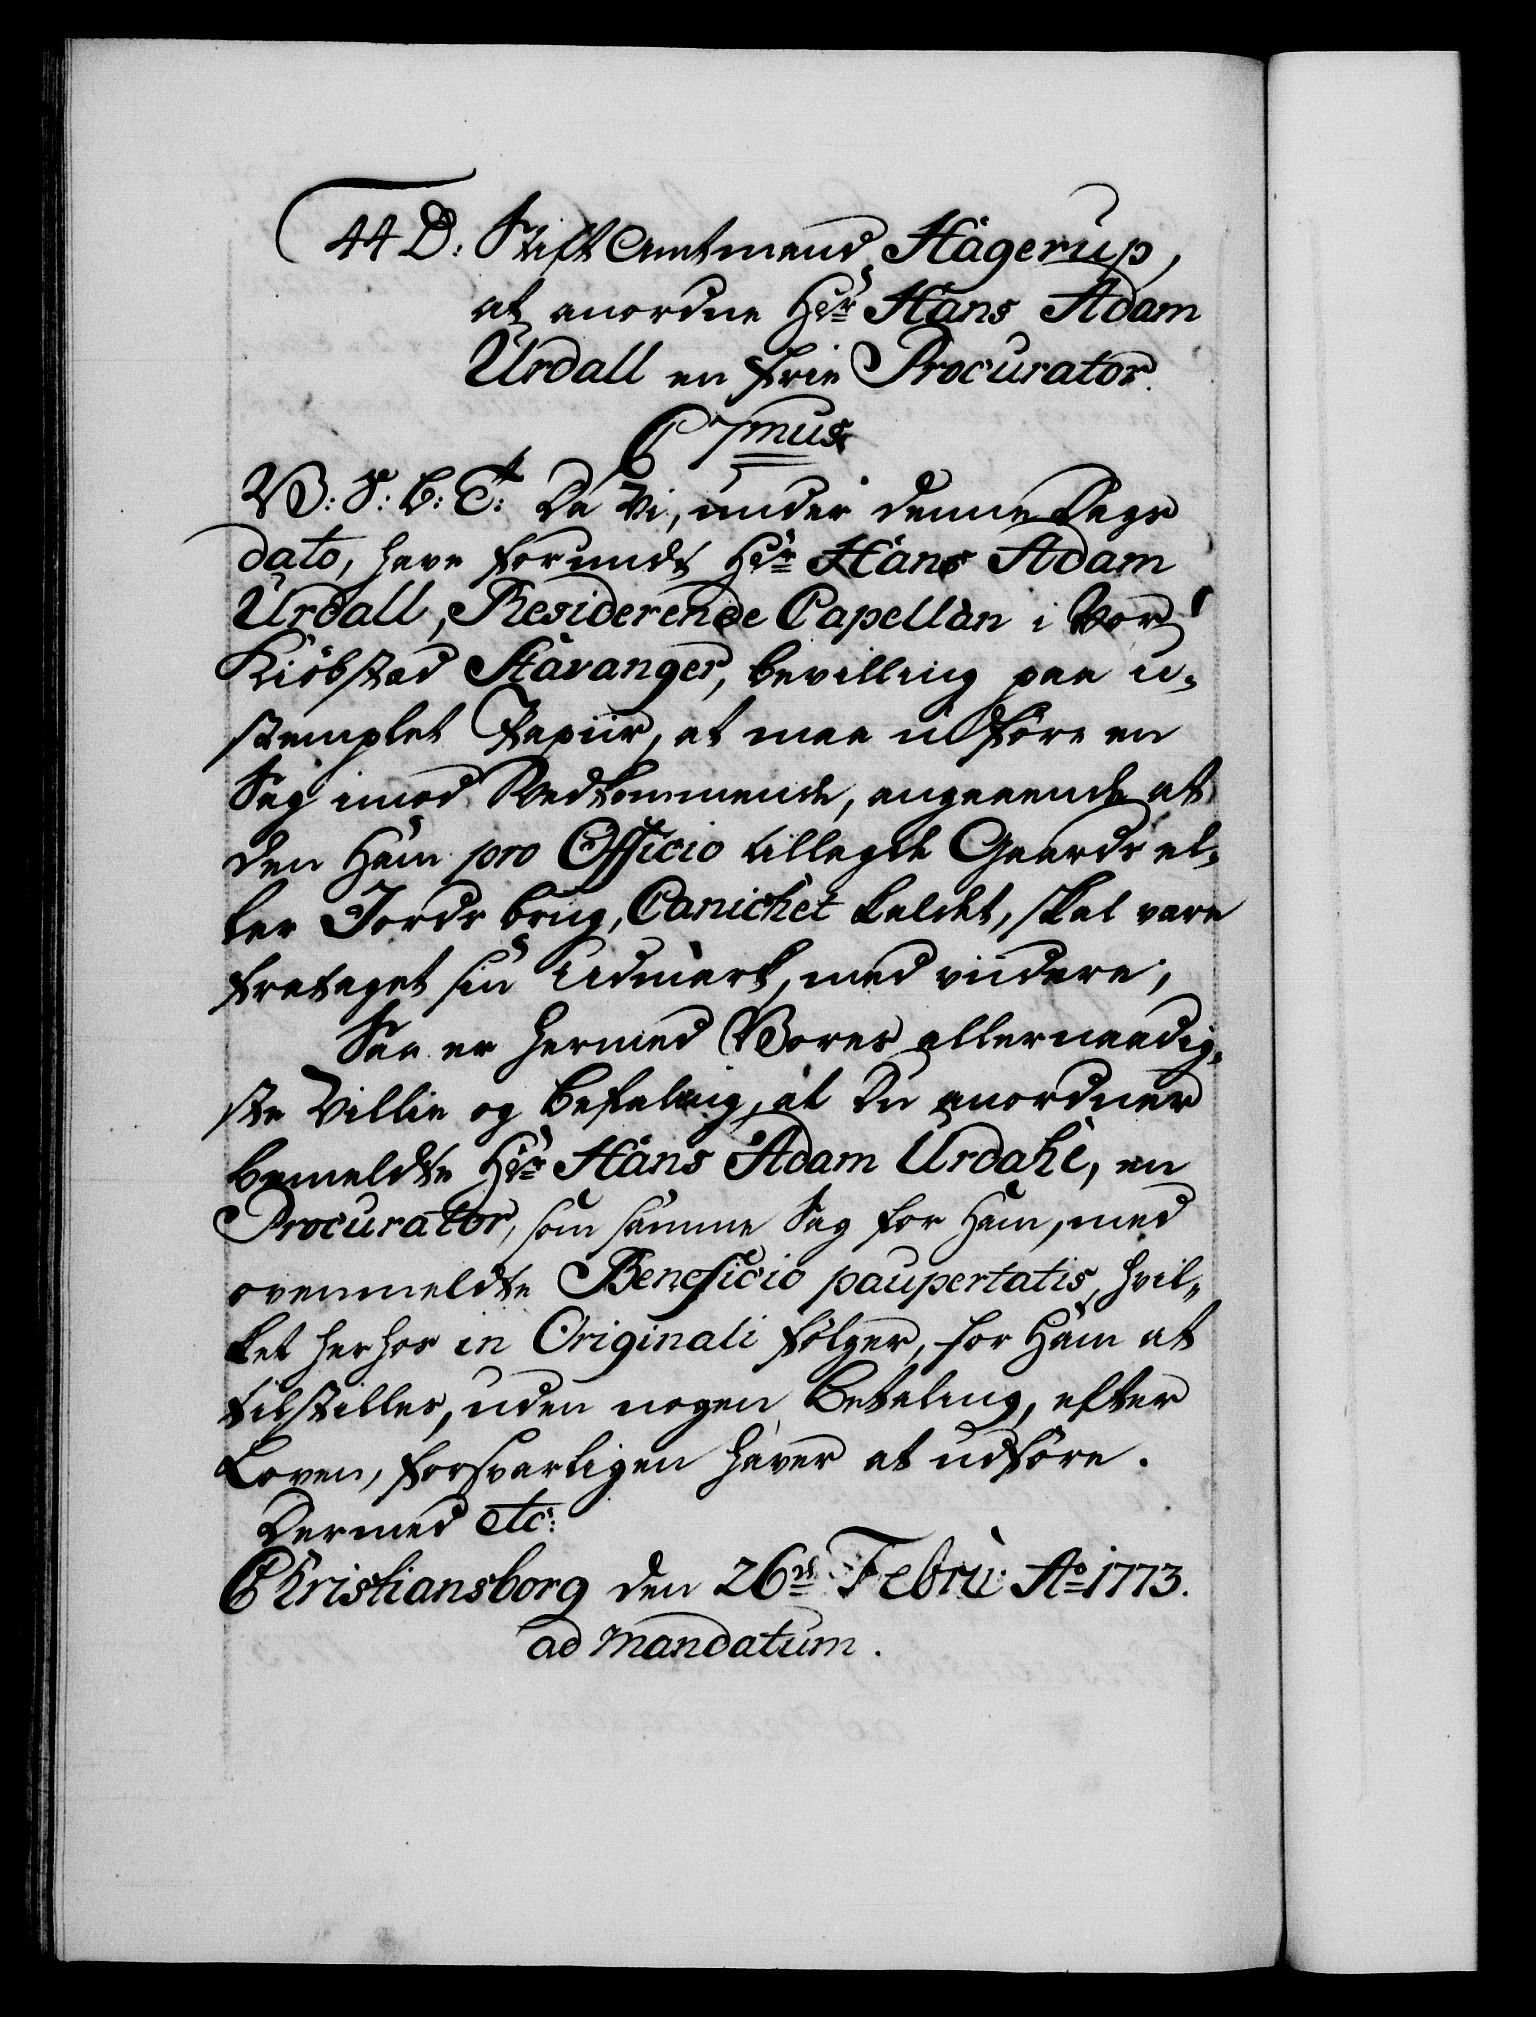 44 D: Stift Amtmand Hagerup,
at anordne Hr Hans Adam
Urdall en frie Procurator.
C 7mus
V: S: B: T: Da Vi, under denne Dags
dato, have forundt Hr Hans Adam
Urdall, Residerende Capellan i Vor
Kiöbstad Stavanger, bevilling paa u-
stemplet Papiir, at maa udföre en
Sag imod Vedkommende, angaaende at
den Ham pro Officio tillagde Gaards el-
ler Jords brug, Canichet kaldet, skal være
frataget sin Udmark, med viidere;
Saa er hermed Vores allernaadig-
ste Villie og Befaling, at Du anordner
bemeldte Hr Hans Adam Urdahl, en
Procurator, som samme Sag for Ham, med
ovenmeldte Beneficio paupertatis, hvil-
ket herhos in Originali fölger, for Ham at
tilstilles, uden nogen Betaling, efter
Loven, forsvarligen haver at udföre.
Dermed etc:
Christiansborg den 26de Febru: Ao 1773.
ad mandatum.